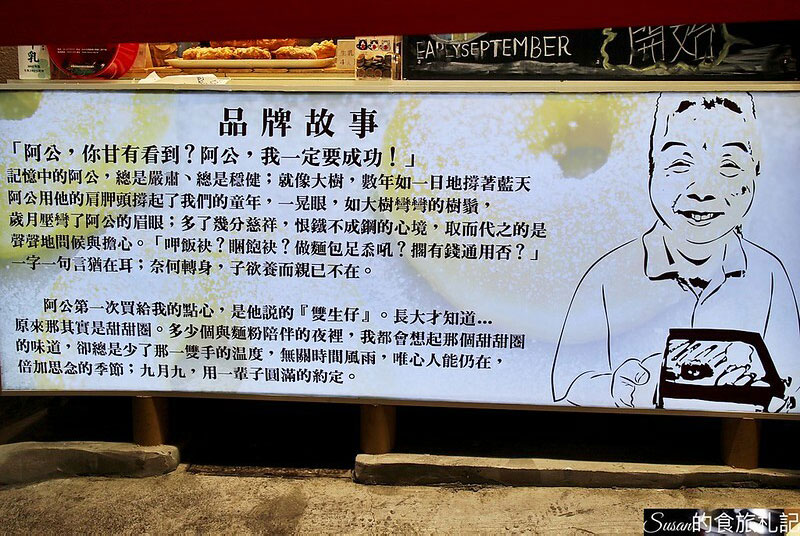 牛乳
生乳
EARLYSEPTEMBER
開始
品牌故事
「阿公，你甘有看到？阿公，我一定要成功！」
記憶中的阿公，總是嚴肅、總是穩健；就像大樹，數年如一日地撐著藍天
阿公用他的肩胛頭撐起了我們的童年，一晃眼，如大樹彎彎的樹鬚，
歲月壓彎了阿公的眉眼；多了幾分慈祥，恨鐵不成鋼的心境，取而代之的是
聲聲地問候與擔心。「呷飯袂？睏飽袂？做麵包足忝吼？擱有錢通用否？」
一字一句言猶在耳；奈何轉身，子欲養而親已不在。
阿公第一次買給我的點心，是他說的『雙生仔』。長大才知道...
原來那其實是甜甜圈。多少個與麵粉陪伴的夜裡，我都會想起那個甜甜圈
的味道，卻總是少了那一雙手的溫度，無關時間風雨，唯心人能仍在，
倍加思念的季節；九月九，用一輩子圓滿的約定。
Susan的食旅札記